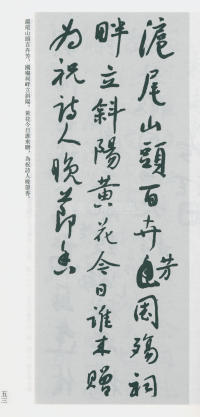 滬尾山頭百卉芳國殤祠
畔立斜陽黃花今日誰來贈
為祝詩人晚節香
滬尾山頭百卉芳，國殤祠畔立斜陽。黃花今日誰來贈，為祝詩人晚節香。
五三